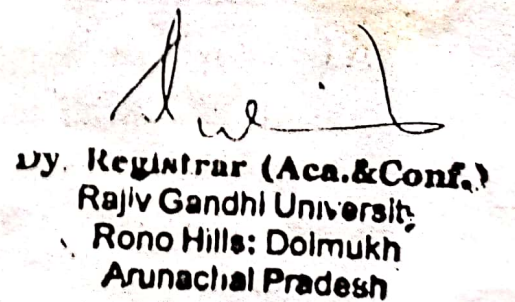 Dy. Registrar (Aca.&Conf.)
Rajiv Gandhi University
Rono Hills: Doimukh
Arunachal Pradesh